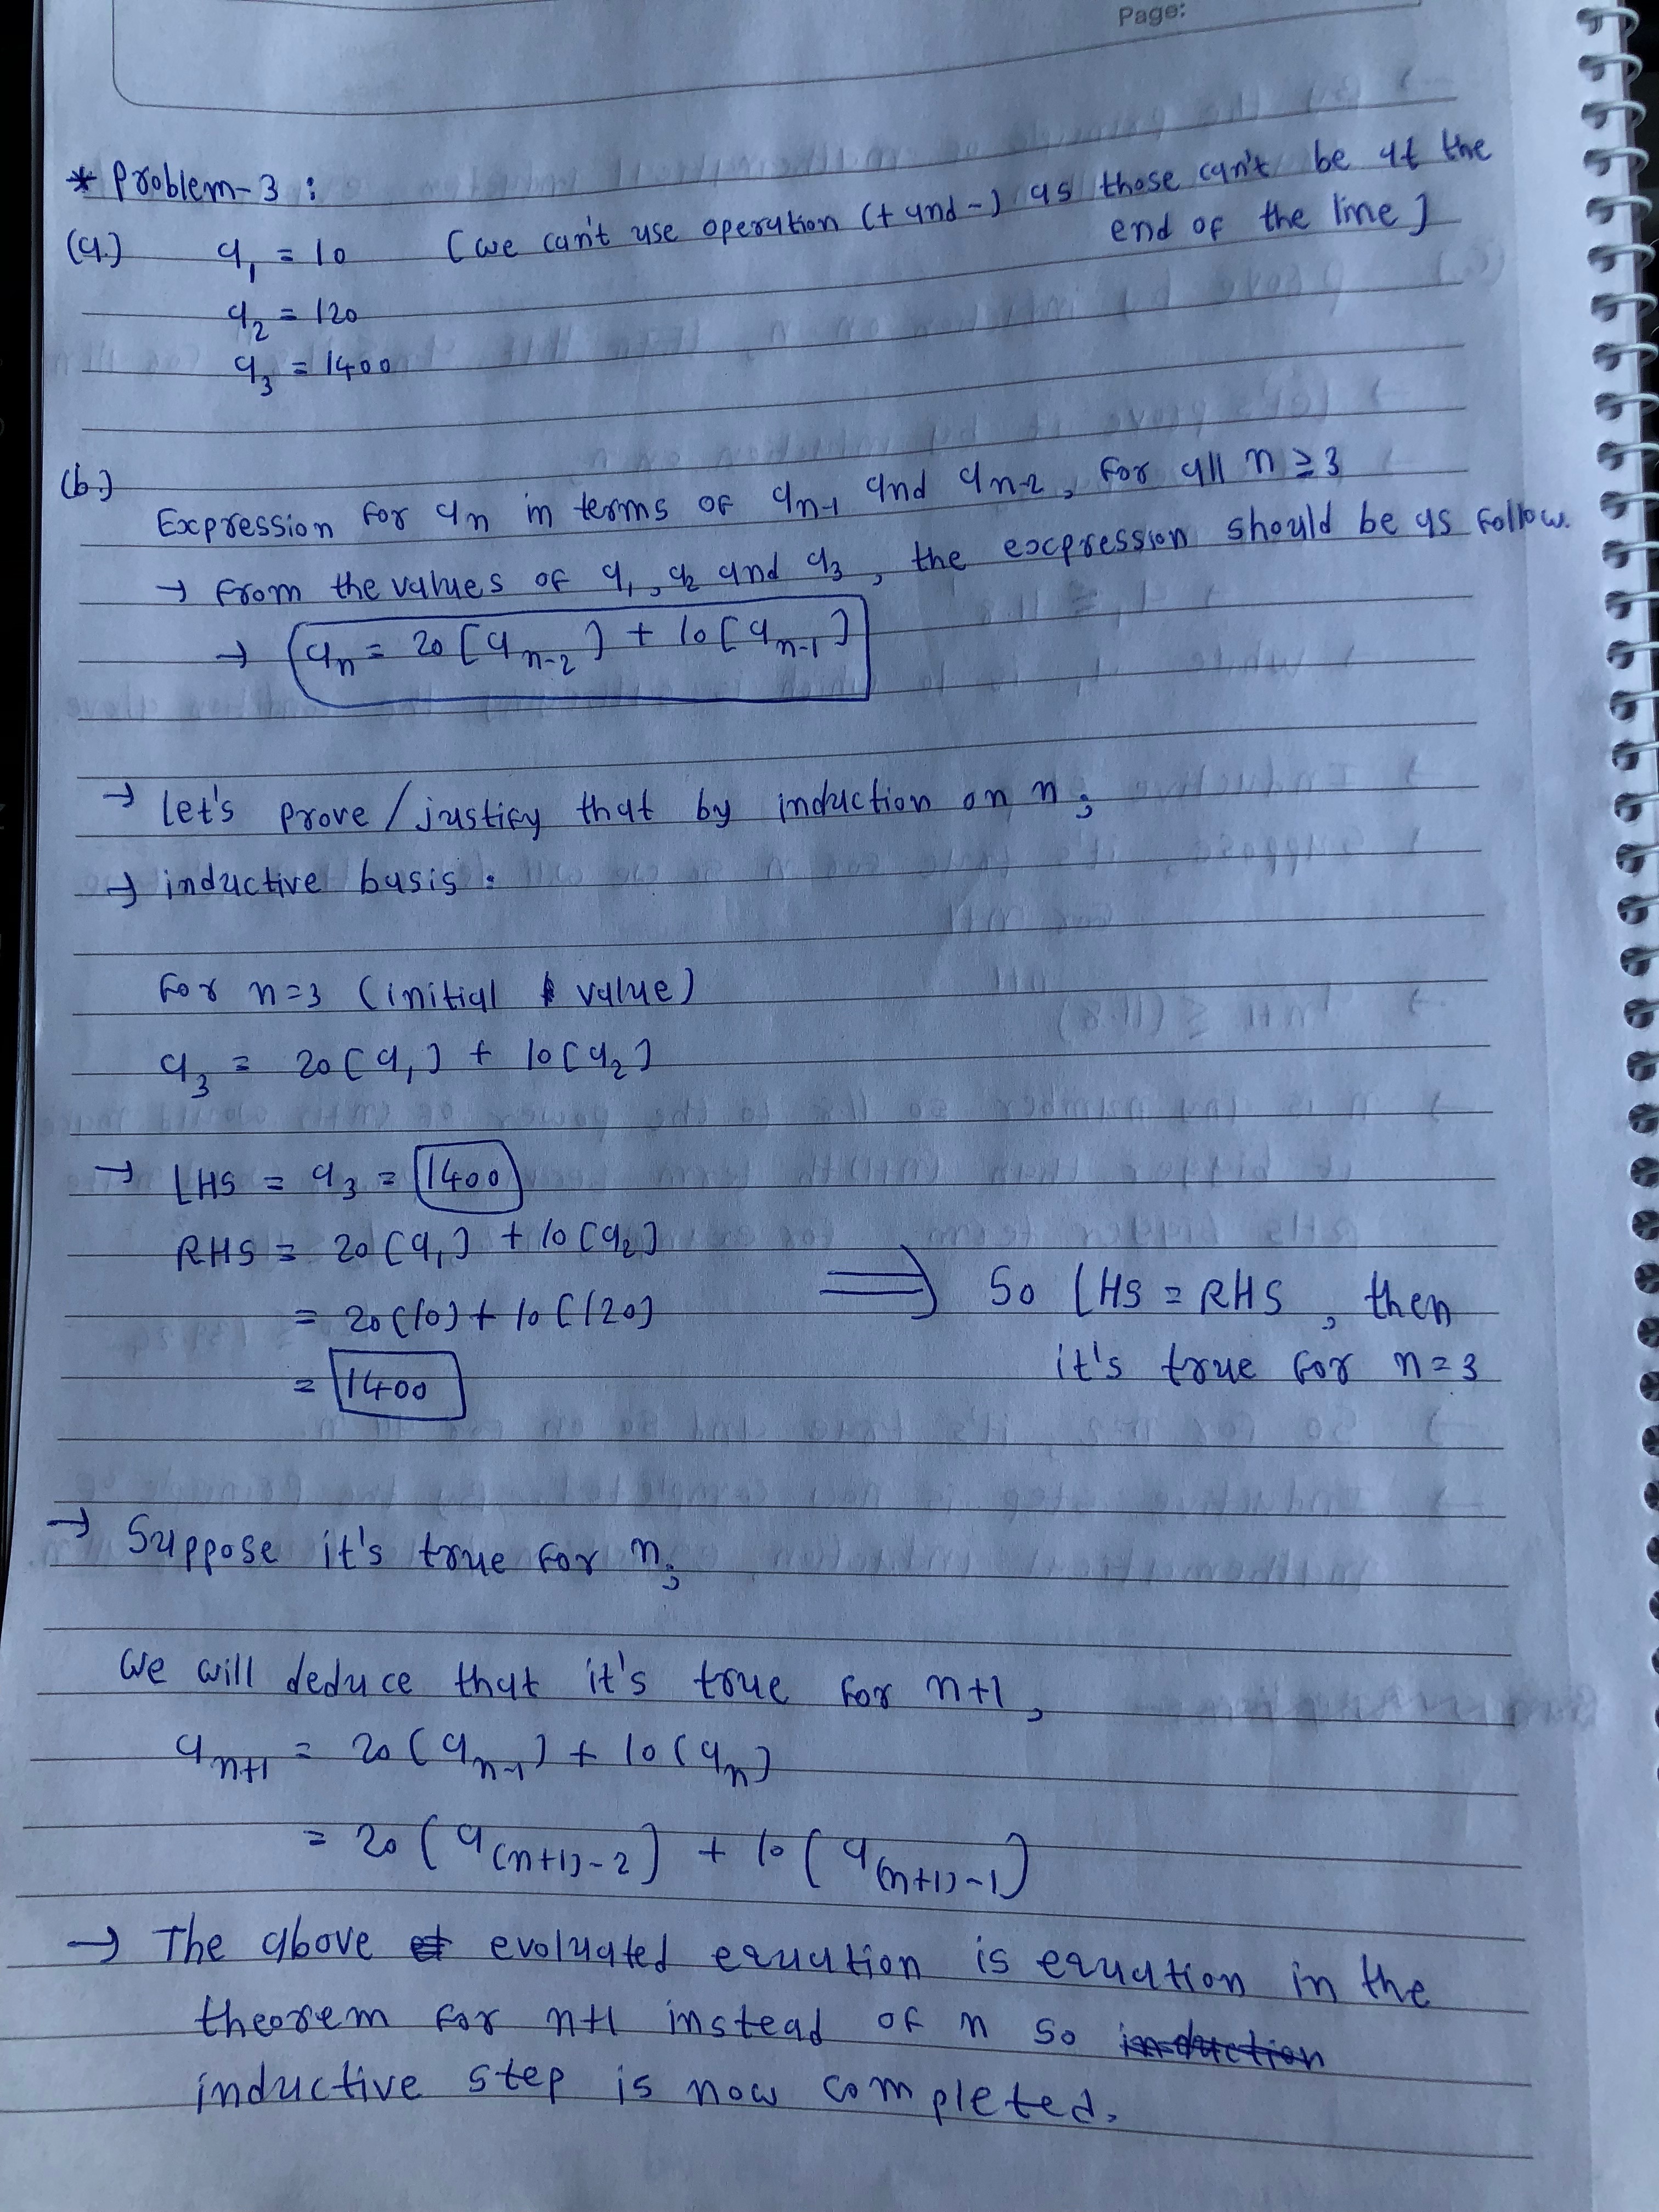 Page:
* Problem-3 :
(a.) a₁ = 10 (we can't use operation (+ and -) as those can't be at the
end of the line)
a₂ = 120
a₃ = 1400
(b.)
Expression for aₙ in terms of aₙ₋₁ and aₙ₋₂, for all n ≥ 3
→ from the values of a₁, a₂ and a₃, the expression should be as follow.
→ aₙ = 20(aₙ₋₂) + 10(aₙ₋₁)
→ let's prove/justify that by induction on n;
→ inductive basis :
For n=3 (initial value)
a₃ = 20(a₁) + 10(a₂)
→ LHS = a₃ = 1400
RHS = 20(a₁) + 10(a₂)
= 20(10) + 10(120) ⟹ So LHS = RHS, then
it's true for n=3
= 1400
→ Suppose it's true for n;
we will deduce that it's true for n+1,
aₙ₊₁ = 20(aₙ₋₁) + 10(aₙ)
= 20(a₍ₙ₊₁₎₋₂) + 10(a₍ₙ₊₁₎₋₁)
→ The above evoluated equation is equation in the
theorem for n+1 instead of n so induction
inductive step is now completed.